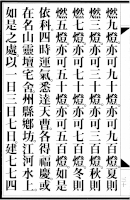 燃九燈亦可九十燈亦可九百燈夏則
燃三燈亦可三十燈亦可三百燈秋則
燃七燈亦可七十燈亦可七百燈冬則
燃五燈亦可五十燈亦可五百燈如是
依科四時運氣悉達天曹各得福慶或
在名山靈壇宅舍州縣鄉坊江河水上
如是之處以一日三日七日建七七四